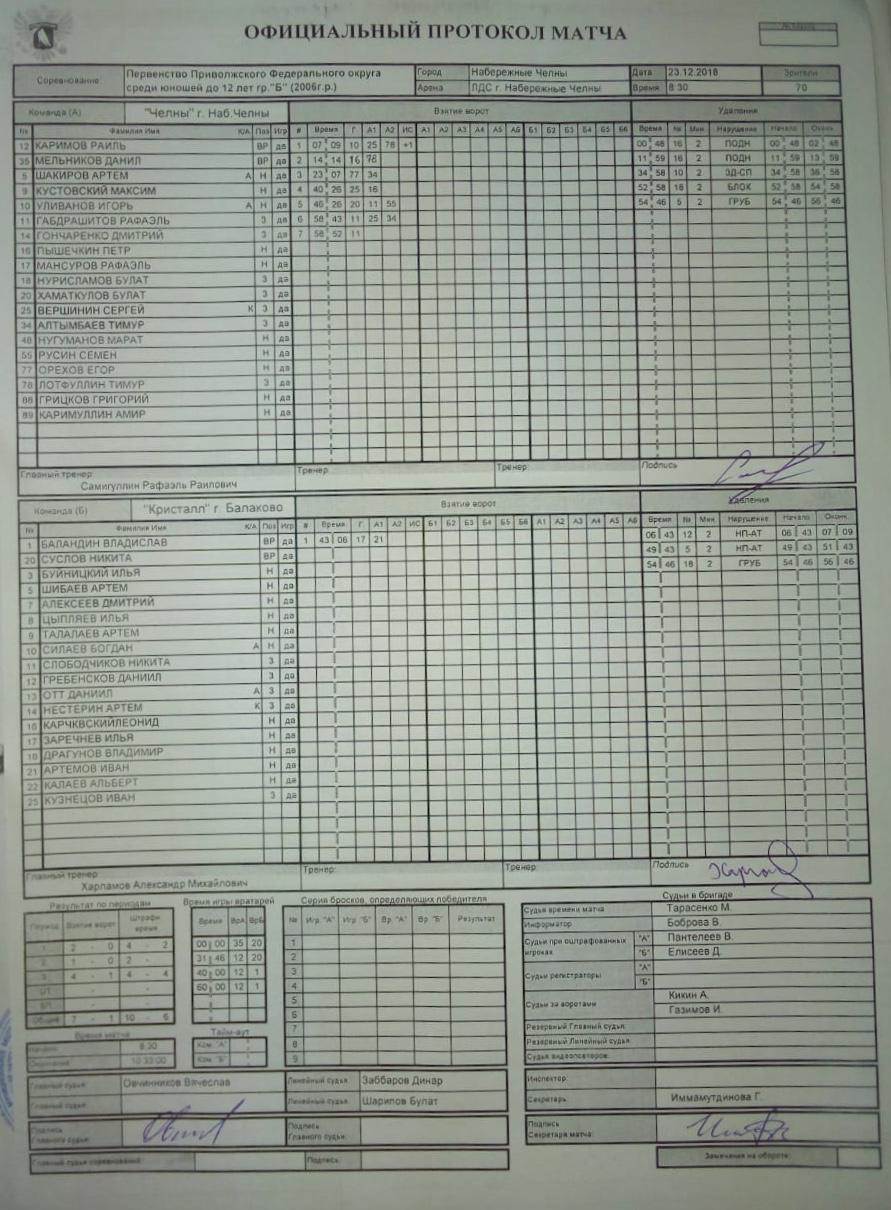 ОФИЦИАЛЬНЫЙ ПРОТОКОЛ МАТЧА
Соревнование: Первенство Приволжского Федерального округа среди юношей до 12 лет гр."Б" (2006г.р.) Город Набережные Челны Дата 23.12.2018 Зрители
Арена ЛДС г. Набережные Челны Время 8 30 70
Команда (А) "Челны" г. Наб.Челны Взятие ворот Удаления
№ Фамилия Имя К/А Поз Игр # Время Г А1 А2 ИС А1 А2 А3 А4 А5 А6 Б1 Б2 Б3 Б4 Б5 Б6 Время № Мин Нарушение Начало Оконч.
12 КАРИМОВ РАИЛЬ ВР да 1 07 09 10 25 78 +1 00 48 16 2 ПОДН 00 48 02 48
35 МЕЛЬНИКОВ ДАНИЛ ВР да 2 14 14 16 78 11 59 16 2 ПОДН 11 59 13 59
5 ШАКИРОВ АРТЕМ А Н да 3 23 07 77 34 34 58 10 2 ЗД-СП 34 58 36 58
9 КУСТОВСКИЙ МАКСИМ Н да 4 40 26 25 16 52 58 18 2 БЛОК 52 58 54 58
10 УЛИВАНОВ ИГОРЬ А Н да 5 46 26 20 11 55 54 46 5 2 ГРУБ 54 46 56 46
11 ГАБДРАШИТОВ РАФАЭЛЬ З да 6 58 43 11 25 34
14 ГОНЧАРЕНКО ДМИТРИЙ З да 7 58 52 11
16 ПЫШЕЧКИН ПЕТР Н да
17 МАНСУРОВ РАФАЭЛЬ Н да
18 НУРИСЛАМОВ БУЛАТ З да
20 ХАМАТКУЛОВ БУЛАТ З да
25 ВЕРШИНИН СЕРГЕЙ К З да
34 АЛТЫМБАЕВ ТИМУР З да
48 НУГУМАНОВ МАРАТ Н да
55 РУСИН СЕМЕН Н да
77 ОРЕХОВ ЕГОР Н да
78 ЛОТФУЛЛИН ТИМУР З да
88 ГРИЦКОВ ГРИГОРИЙ Н да
89 КАРИМУЛЛИН АМИР Н да
Главный тренер: Самигуллин Рафаэль Раилович Тренер: Тренер: Подпись
Команда (Б) "Кристалл" г. Балаково Взятие ворот Удаления
№ Фамилия Имя К/А Поз Игр # Время Г А1 А2 ИС Б1 Б2 Б3 Б4 Б5 Б6 А1 А2 А3 А4 А5 А6 Время № Мин Нарушение Начало Оконч.
1 БАЛАНДИН ВЛАДИСЛАВ ВР да 1 43 06 17 21 06 43 12 2 НП-АТ 06 43 07 09
20 СУСЛОВ НИКИТА ВР да 49 43 5 2 НП-АТ 49 43 51 43
3 БУЙНИЦКИЙ ИЛЬЯ Н да 54 46 18 2 ГРУБ 54 46 56 46
5 ШИБАЕВ АРТЕМ Н да
7 АЛЕКСЕЕВ ДМИТРИЙ Н да
8 ЦЫПЛЯЕВ ИЛЬЯ Н да
9 ТАЛАЛАЕВ АРТЕМ Н да
10 СИЛАЕВ БОГДАН А Н да
11 СЛОБОДЧИКОВ НИКИТА З да
12 ГРЕБЕНСКОВ ДАНИИЛ З да
13 ОТТ ДАНИИЛ А З да
14 НЕСТЕРИН АРТЕМ К З да
16 КАРЧКВСКИЙЛЕОНИД Н да
17 ЗАРЕЧНЕВ ИЛЬЯ Н да
18 ДРАГУНОВ ВЛАДИМИР Н да
21 АРТЕМОВ ИВАН Н да
22 КАЛАЕВ АЛЬБЕРТ Н да
25 КУЗНЕЦОВ ИВАН З да
Главный тренер Харламов Александр Михайлович Тренер: Тренер: Подпись
Результат по периодам Время игры вратарей Серия бросков, определяющих победителя Судьи в бригаде
Период Взятие ворот Штрафн. время Время ВрА ВрБ № Игр. "А" Игр. "Б" Вр. "А" Вр. "Б" Результат
1 2 - 0 4 - 2 00 00 35 20 1
2 1 - 0 2 - 31 46 12 20 2
3 4 - 1 4 - 4 40 00 12 1 3
ОТ 60 00 12 1 4
БП 5
Общее 7 - 1 10 - 6 6
Время матча Тайм-аут 7
Начало 8 30 Ком. "А" 8
Окончание 10 33 00 Ком. "Б" 9
Судья времени матча Тарасенко М.
Информатор Боброва В.
Судьи при оштрафованных игроках "А" Пантелеев В.
"Б" Елисеев Д.
Судьи регистраторы "А"
"Б"
Судьи за воротами Кикин А.
Газимов И.
Резервный Главный судья:
Резервный Линейный судья:
Судья видеоповторов:
Главный судья Овчинников Вячеслав Линейный судья Заббаров Динар Инспектор:
Главный судья: Линейный судья: Шарипов Булат Секретарь: Иммамутдинова Г.
Подпись Главного судьи: Подпись Главного судьи: Подпись Секретаря матча:
Главный судья соревнований Подпись: Замечания на обороте: